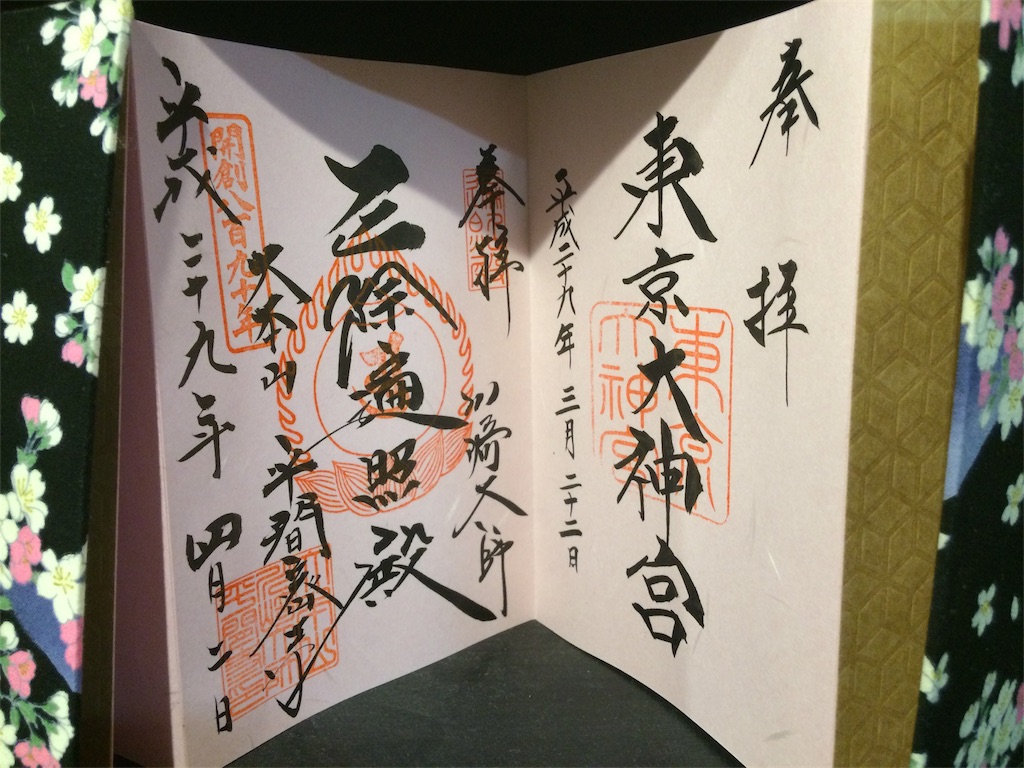 奉拝
東京大神宮
平成二十九年 三月 二十二日
奉拝
川崎大師
遍照殿
大本山 平間寺
開創八百九十年
平成二十九年 四月 二日